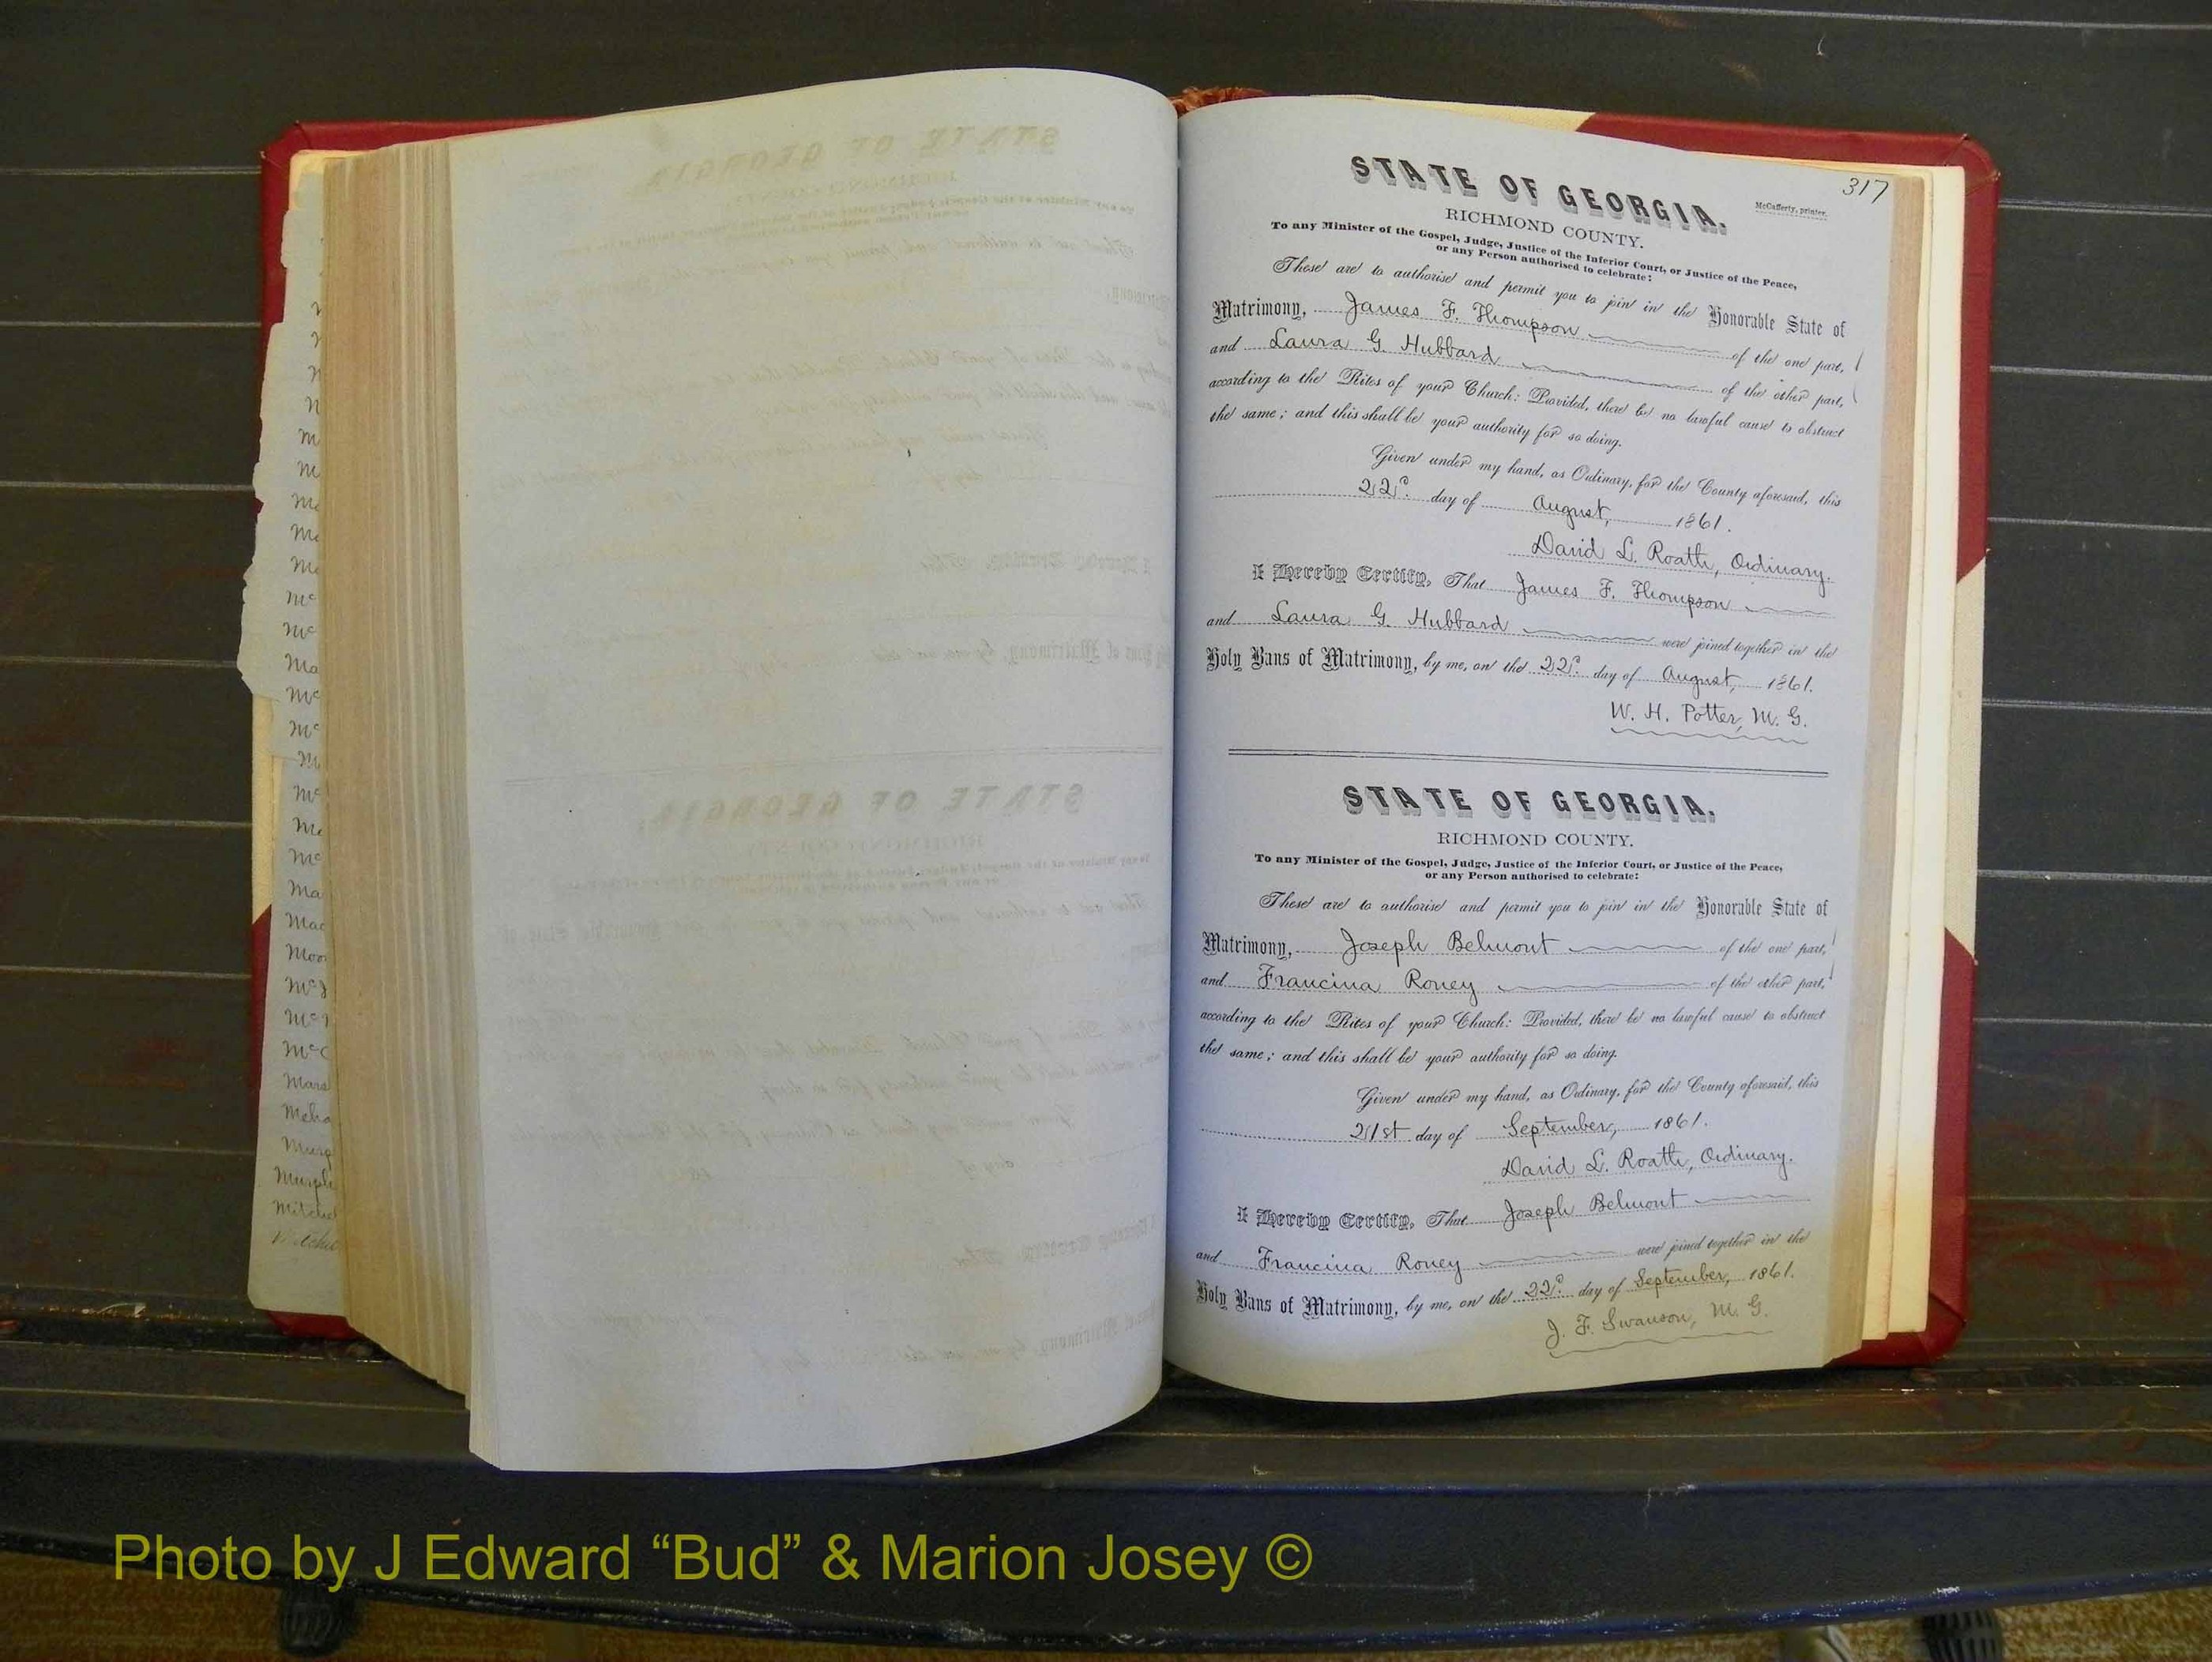 m
m
me
me
me
mc
mc
ma
mc
mc
mc
me
mc
ma
mac
moo
mc
mc
mc
mara
meha
murp
murph
mitchel
317
STATE OF GEORGIA.
McCafferty, printer.
RICHMOND COUNTY.
To any Minister of the Gospel, Judge, Justice of the Inferior Court, or Justice of the Peace,
or any Person authorised to celebrate:
These are to authorise and permit you to join in the Honorable State of
Matrimony, James F. Thompson of the one part,
and Laura G. Hubbard of the other part,
according to the Rites of your Church: Provided, there be no lawful cause to obstruct
the same; and this shall be your authority for so doing.
Given under my hand, as Ordinary, for the County aforesaid, this
22d. day of August, 1861.
David L. Roath, Ordinary.
I Hereby Certify, That James F. Thompson
and Laura G. Hubbard were joined together in the
Holy Bans of Matrimony, by me, on the 22d. day of August, 1861.
W. H. Potter, M. G.
STATE OF GEORGIA.
RICHMOND COUNTY.
To any Minister of the Gospel, Judge, Justice of the Inferior Court, or Justice of the Peace,
or any Person authorised to celebrate:
These are to authorise and permit you to join in the Honorable State of
Matrimony, Joseph Belmont of the one part,
and Francina Roney of the other part,
according to the Rites of your Church: Provided, there be no lawful cause to obstruct
the same; and this shall be your authority for so doing.
Given under my hand, as Ordinary, for the County aforesaid, this
21st day of September, 1861.
David L. Roath, Ordinary.
I Hereby Certify, That Joseph Belmont
and Francina Roney were joined together in the
Holy Bans of Matrimony, by me, on the 22d. day of September, 1861.
J. F. Swanson, M. G.
Photo by J Edward “Bud” & Marion Josey ©